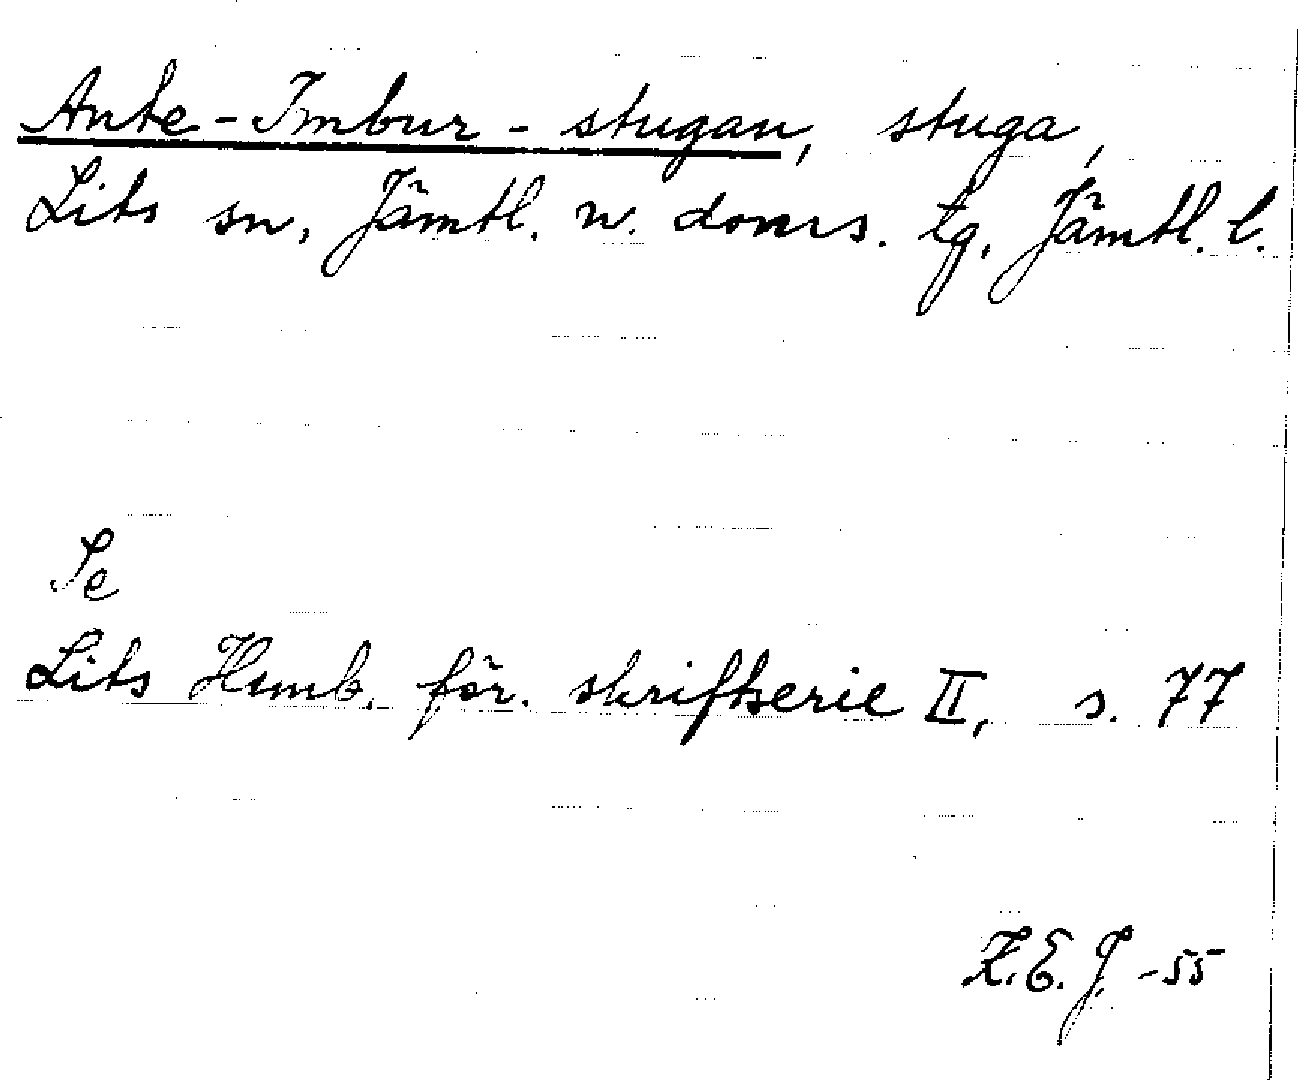 Ante-Imbur-stugan, stuga,
Lits sn, Jämtl. n. doms. tg, Jämtl. l.
Se
Lits Hemb. för. skriftserie II, s. 77
Z.E.J. -55